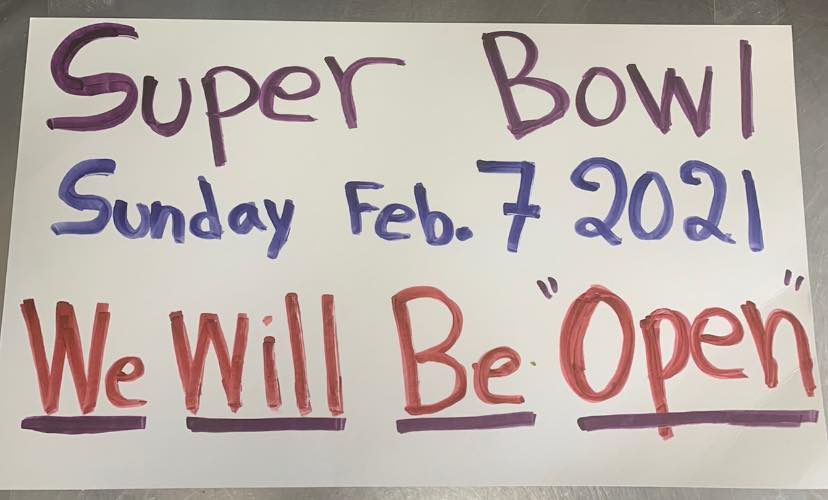 Super Bowl
Sunday Feb. 7 2021
We Will Be "Open"